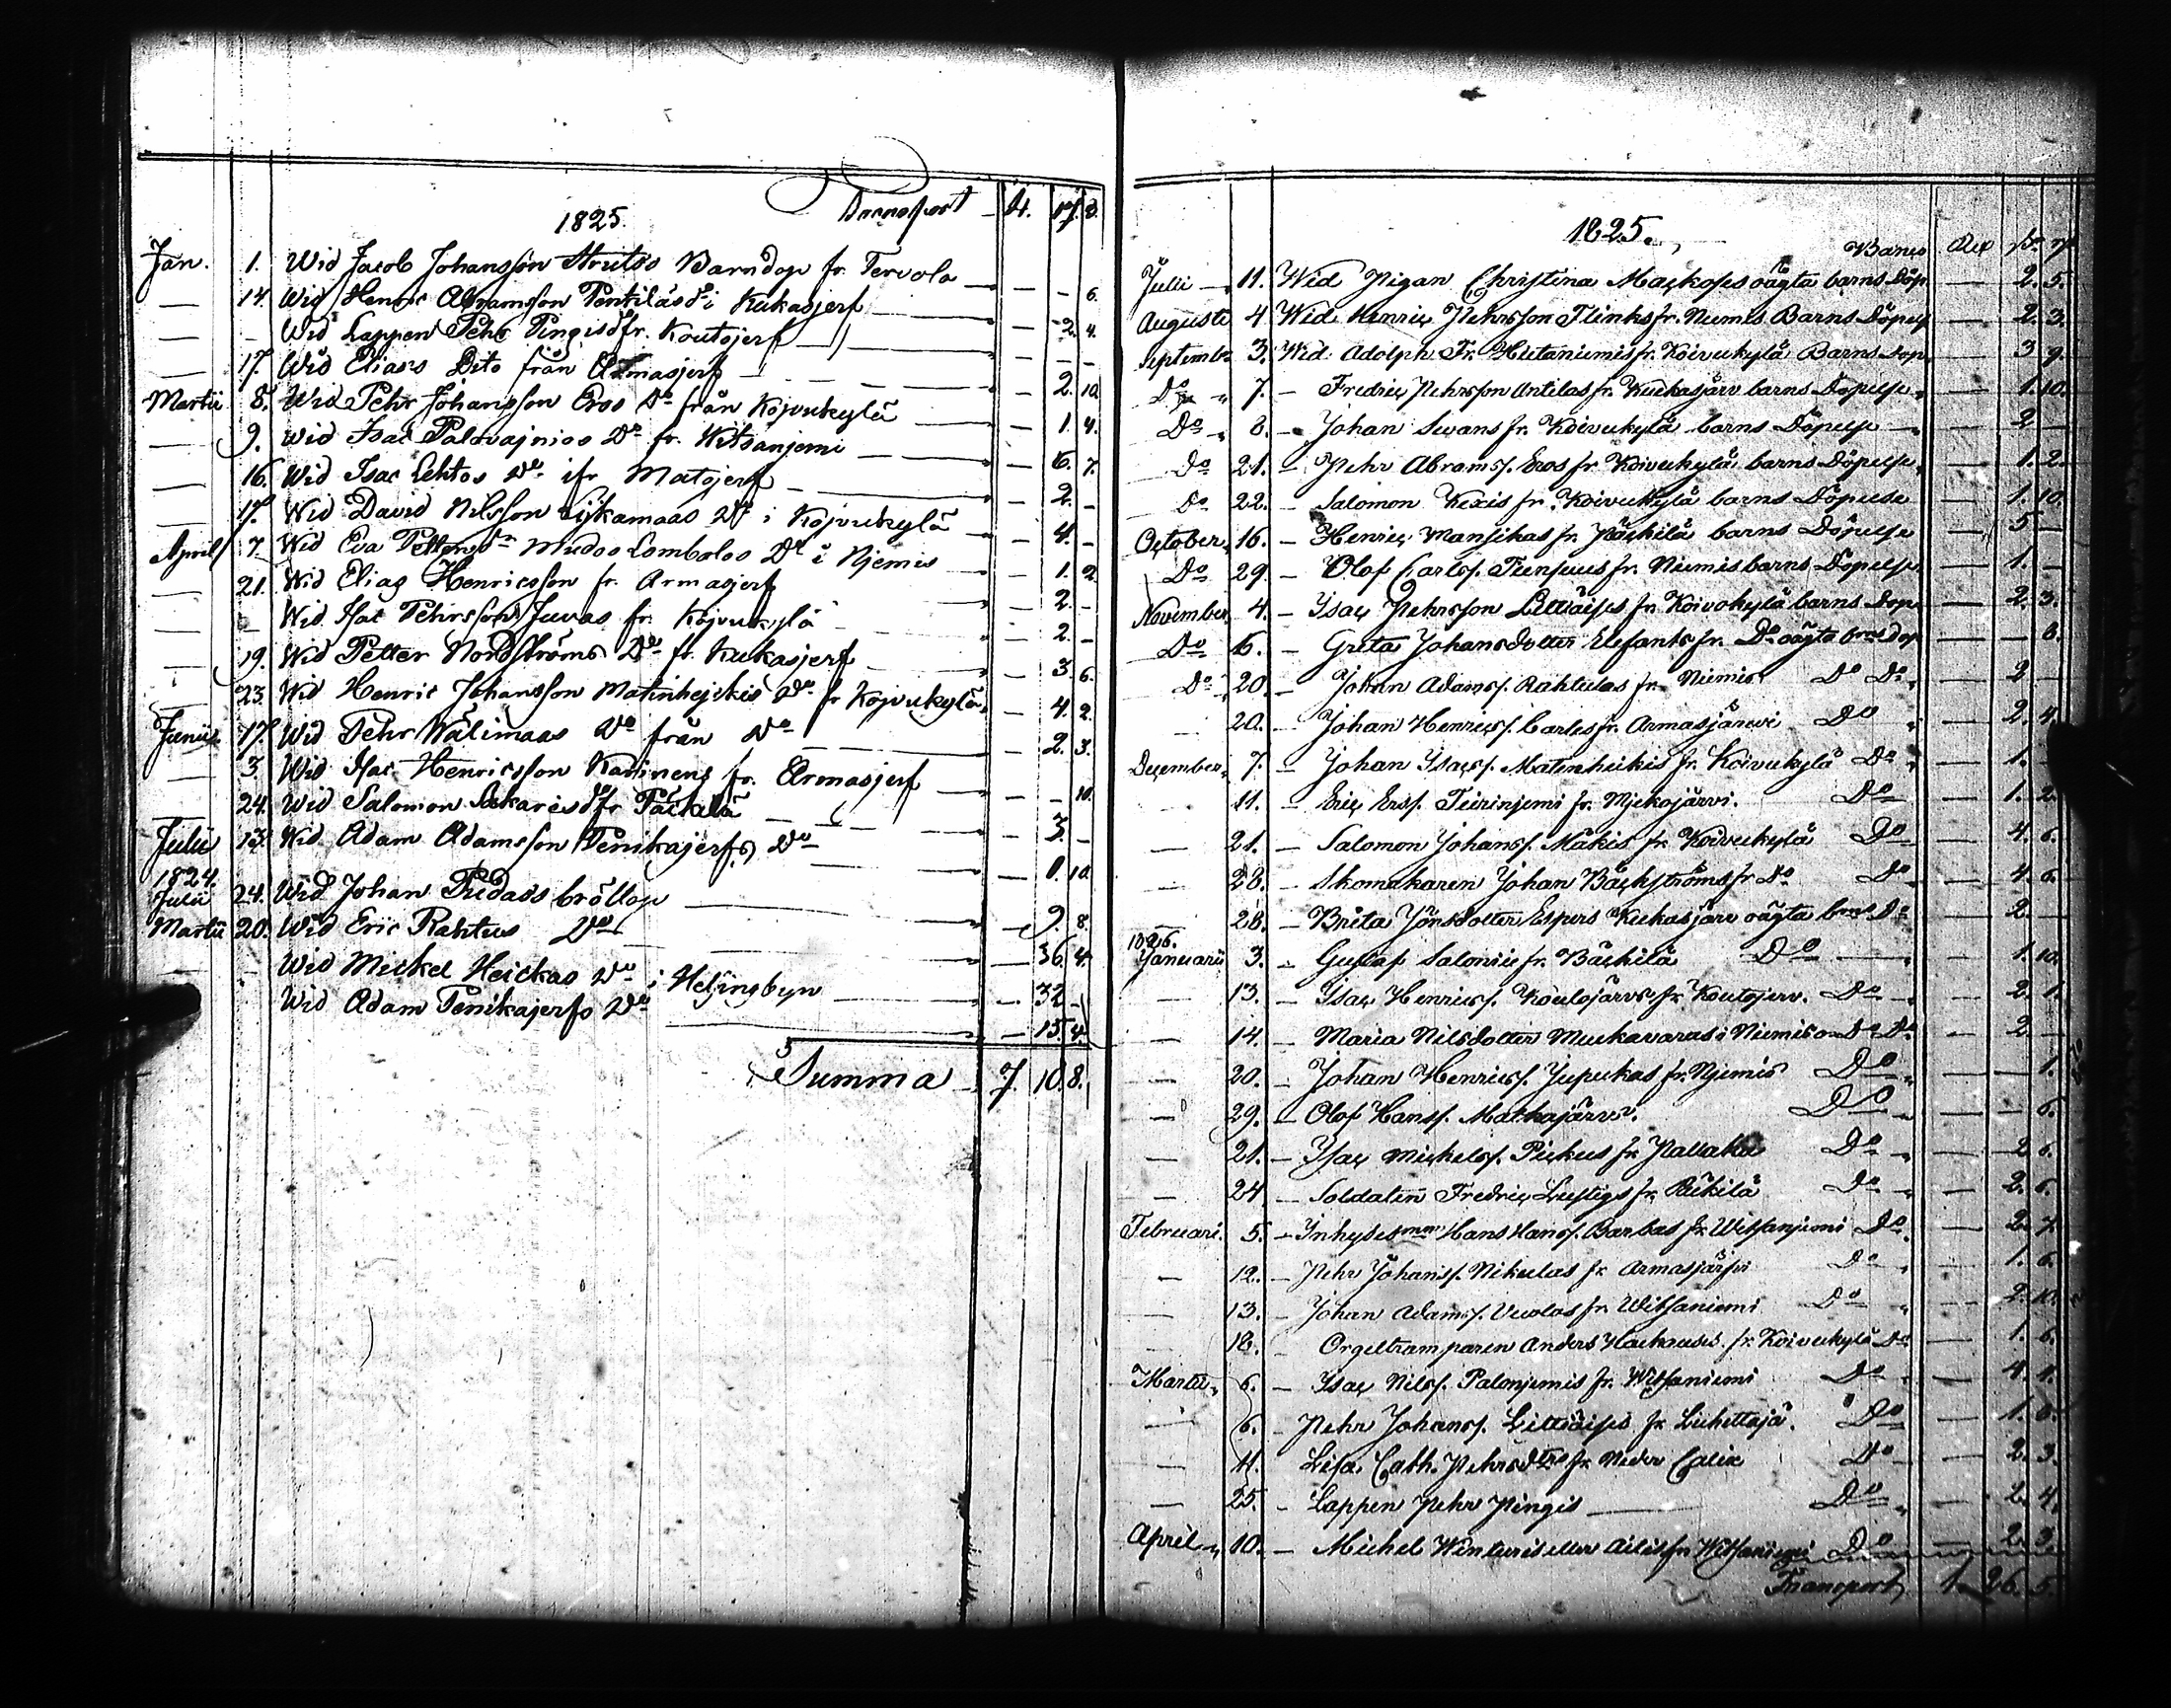 1825. Transport
Jan. 1. Wid Jacob Johansson Barndop fr. Tervola — — 6.
— 14. Wid Henric Abramsson Pentilas do i Kukasjerf — 2. 4.
— — Wid Lappen Pehr Pingis do fr. Koutojerf — — —
— 17. Wid Eliass Dito från Armasjerf — 2. 10.
Martii 8. Wid Pehr Johansson Eros Do från Kojvukylä — 1. 4.
— 9. Wid Isac Palovajnios Do fr. Witsanjemi — 6. 7.
— 16. Wid Isac Lehtos Do ifr Matojerf — 2. —
— 17. Wid David Nilsson Do i Kojvukylä — 4. —
April 7. Wid Eva Mudos Lombolos Do i Njemis — 1. 2.
— 21. Wid Elias Henricsson fr. Armasjerf — 2. —
— — Wid Isac Pehrsson Juvas fr. Kojvukylä — 2. —
— 19. Wid Petter Nordströms Do fr. Kukasjerf — 3. 6.
— 23. Wid Henric Johansson Matinhejckis Do fr Kojvukylä — 4. 2.
Junii 17. Wid Pehr Wälimaas Do från Do — 2. 3.
— 3. Wid Isac Henricsson Karinens fr. Armasjerf — — 10.
— 24. Wid Salomon Sakaris do fr Päckilä — 3. —
Julii 13. Wid Adam Adamsson Penikajerfs Do — 1. 10.
1824.
Julii 24. Wid Johan Fredass bröllop — 9. 8.
Martii 20. Wid Eric Rahtus Do — 36. 4.
— Wid Mickel Heickas Do i Helsingbyn — 32 —
Wid Adam Penikajerfs Do — 15. 4.
Summa 7. 10. 8.
1825.
Banco
Julii 11. Wid Pigan Christina Mackoses oägta barns Döp — 2. 5.
Augusti 4 Wid Henric Pehrsson Flinks fr. Niemis Barns Döpels — 2. 3.
Septemb 3. Wid Adolph Fr. Hietaniemis fr. Koivukylä Barns Döp — 3 9.
Do 7. — Fredric Pehrsson Antilas fr. Kuckasjärv barns Döpelse — 1. 10.
Do 8. — Johan Swans fr. Koivukylä barns Döpelse — 2 —
Do 21. — Pehr Abramss. Eros fr. Koivukylä barns Döpelse — 1. 2.
Do 22. — Salomon Kexis fr. Koivukylä barns Döpelse — 1. 10.
October 16. — Henric Mansikas fr. Päckilä barns Döpelse — 5 —
Do 29. — Olof Carlss. fr. Niemis barns Döpelse — 1. —
November 4. — Isac Pehrsson fr. Koivokylä barns Döp — 2. 3.
Do 6. — Greta Johansdotter Elefants fr. Do oägta barns dop — — 6.
Do 20. — Johan Adamss. Rahtulas fr. Niemis Do Do — 2 —
20. — Johan Henricss. Carles fr. Armasjärwi Do — 2. 4.
December 7. — Johan Isacss. Matinheikis fr. Koivukylä Do — 1.
11. — Eric Erss. fr. Mjekojärvi. Do — 1. 2.
— 21. — Salomon Johanss. Mäkis fr Koivukylä Do — 4. 6.
— 28. — Skomakaren Johan Bäckströms fr Do Do — 4. 6.
— 28. — Brita Jönsdotter Espers Kuckasjärv oägta barns Do — 2. —
1826.
Januarii 3. — Gustaf Salonis fr. Päckilä Do — 1. 10.
— 13. — Isac Henricss. Koutojärvs fr Koutojerv. Do — 2. 1.
— 14. — Maria Nilsdotter Muckavaras i Niemis o Do Do — 2 —
— 20. — Johan Henricss. Jupukas fr. Njemis Do — — 1.
— 29. — Olof Hanss. Do — — 6.
— 21. — Isac Mickelss. Pickus fr Do — 2 6.
— 24 — Soldaten Fredric Lustigs fr. Do — 2. 6.
Februari 5. — Inhyses Hans Hanss. Barbas fr. Witsanjemi Do — 2. 7.
— 12. — Pehr Johanss. Nikulas fr Armasjärfvi Do — 1. 6.
— 13. — Johan Adamss. fr Witsaniemi Do — 2. 10.
18. — Orgeltramparen Anders fr. Koivukylä Do — 1. 6.
Martii 6. — Isac Nilss. Palonjemis fr. Witsaniemi Do — 4. 1.
— 6. — Pehr Johanss. fr Do — 1. 6.
— 11. — Lisa Cath. Pehrsdtrs fr Neder Calix Do — 2. 3.
— 25. — Lappen Pehr Pingis — Do — 2. 4.
April 10. — Michel eller fr Witsaniemi Do — 2. 3.
Transport 1. 26. 5.